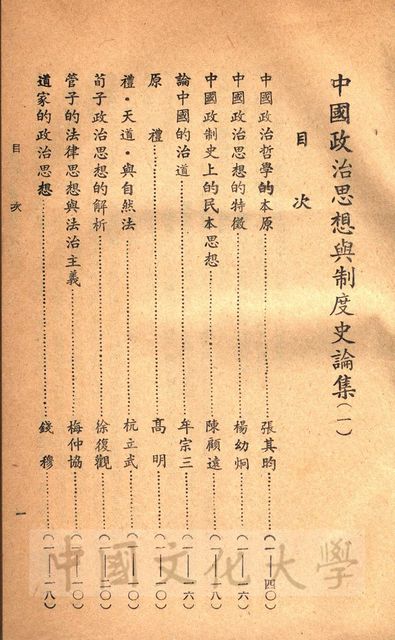 中國政治思想與制度史論集(一)
目次
中國政治哲學的本原……張其昀……(一—四〇)
中國政治思想的特徵……楊幼炯……(一—一六)
中國政制史上的民本思想……陳顧遠……(一—一八)
論中國的治道……牟宗三……(一—一六)
原禮……高明……(一—一〇)
禮・天道・與自然法……杭立武……(一—一〇)
荀子政治思想的解析……徐復觀……(一—二〇)
管子的法律思想與法治主義……梅仲協……(一—一〇)
道家的政治思想……錢穆……(一—一八)
目次
一
中國文化大學